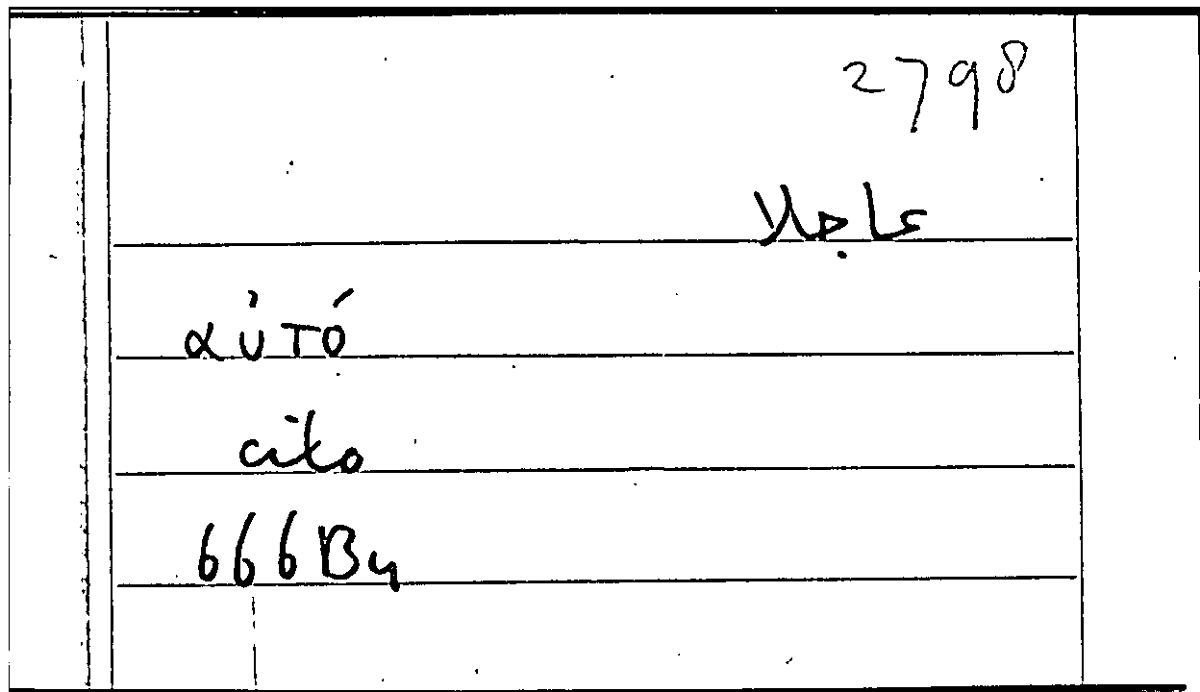 2798
عاجلا
αὐτό
cito
666By